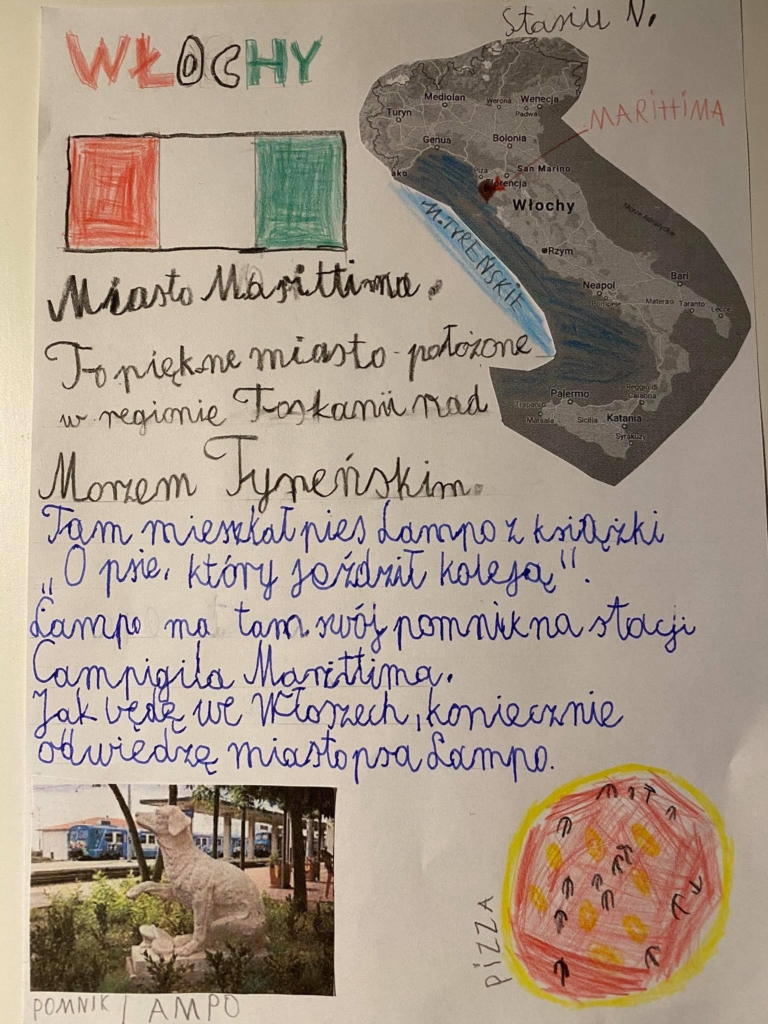 Stasiu N.
WŁOCHY
MARITTIMA
Mediolan
Werona
Wenecja
Padwa
Turyn
Genua
Bolonia
San Marino
Florencja
Włochy
Morze Adriatyckie
M. TYREŃSKIE
Rzym
Neapol
Pompeje
Bari
Matera
Taranto
Lecce
Palermo
Reggio di Calabria
Trapani
Marsala
Sicilia
Katania
Syrakuzy
Miasto Marittima.
To piękne miasto położone
w regionie Toskanii nad
Morzem Tyreńskim.
Tam mieszkał pies Lampo z książki
"O psie, który jeździł koleją".
Lampo ma tam swój pomnik na stacji
Campigila Marittima.
Jak będę we Włoszech, koniecznie
odwiedzę miasto psa Lampo.
POMNIK LAMPO
PIZZA